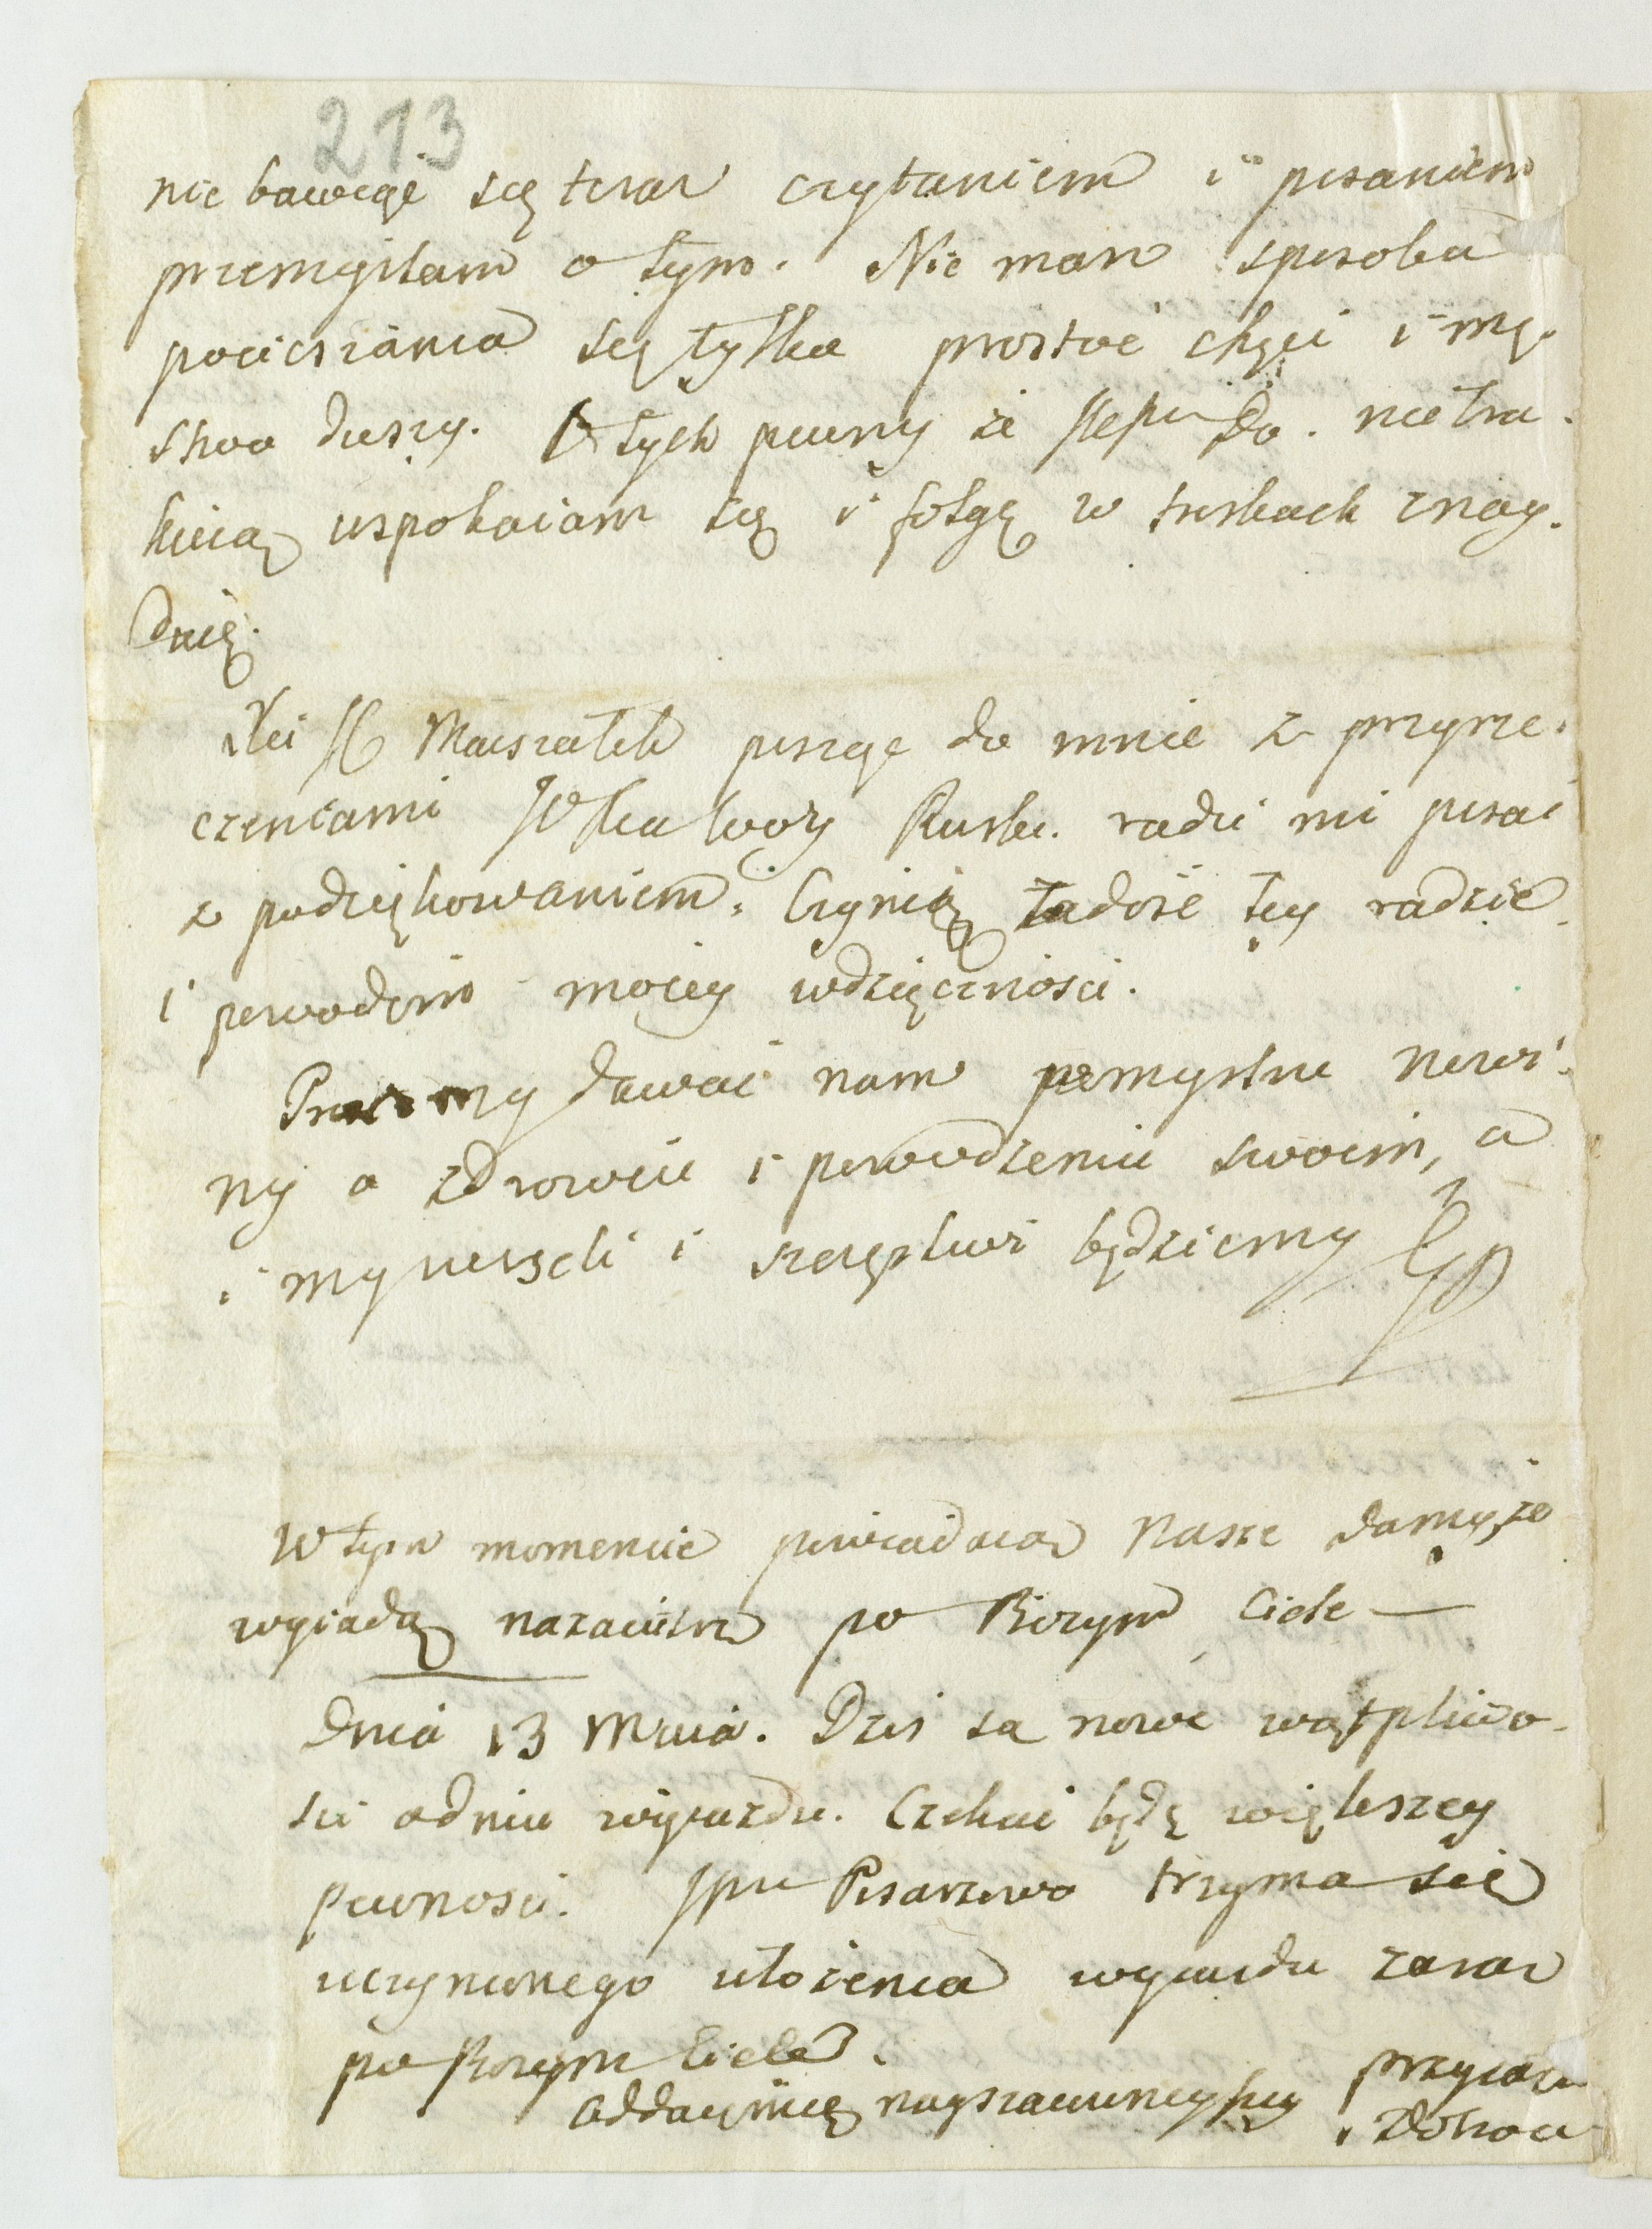 213
nie bawiąc się teraz czytaniem i pisaniem
przemyślam o tym. Nie mam sposobu
pocieszania się tylko prostoć chęci i mę-
stwo duszy. O tych pewny że do. nietra-
kuią uspokaiam się i folgę w troskach znay-
duię.
Marszałek pisząc do mnie z przyrze-
czeniami Wwody Rusk. radzi mi pisać
z podziękowaniem. Czynię zadość tey radzie
i powodom moiey wdzięczności.
Prosiemy dawać nam pomyślne nowi-
ny o zdrowiu i powodzeniu swoim, a
i my weseli i szczęśliwi będziemy
W tym momencie powiadaią nasze damy, że
wyiadą nazaiutrz po Bożym Ciele —
Dnia 13 Maia. Dziś są nowe wątpliwo-
ści o dniu wyiazdu. Czekać będę większey
pewności. Jpu Pisarzewo trzyma się
uczynionego ułożenia wyiazdu zaraz
po Bożym Ciele.
oddaymie nayszacownieyszey przyiaźni
i zdrowia